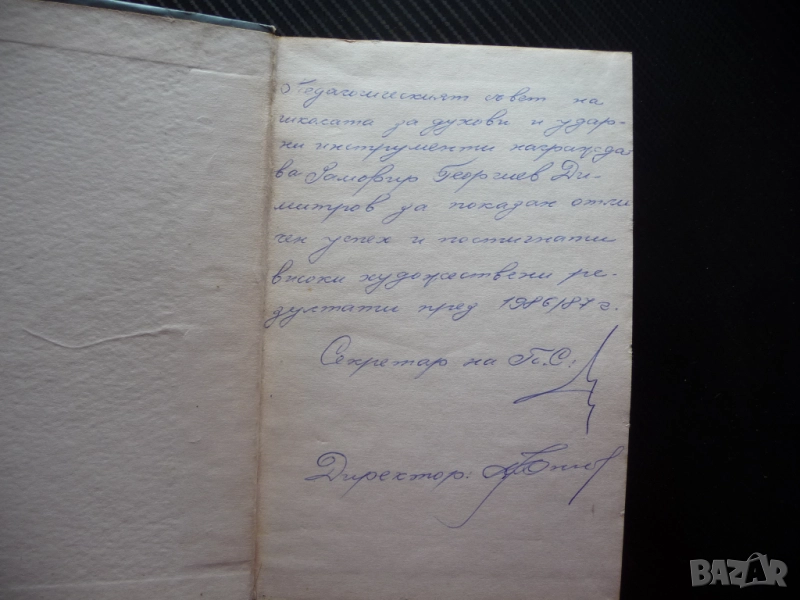 Педагогическият съвет на
школата за духови и удар-
ни инструменти награжда-
ва Георгиев Ди-
митров за показан отли
чен успех и постигнати
високи художествени ре-
зултати през 1986/87 г.
Секретар на П.С.:
Директор:
BAZAR